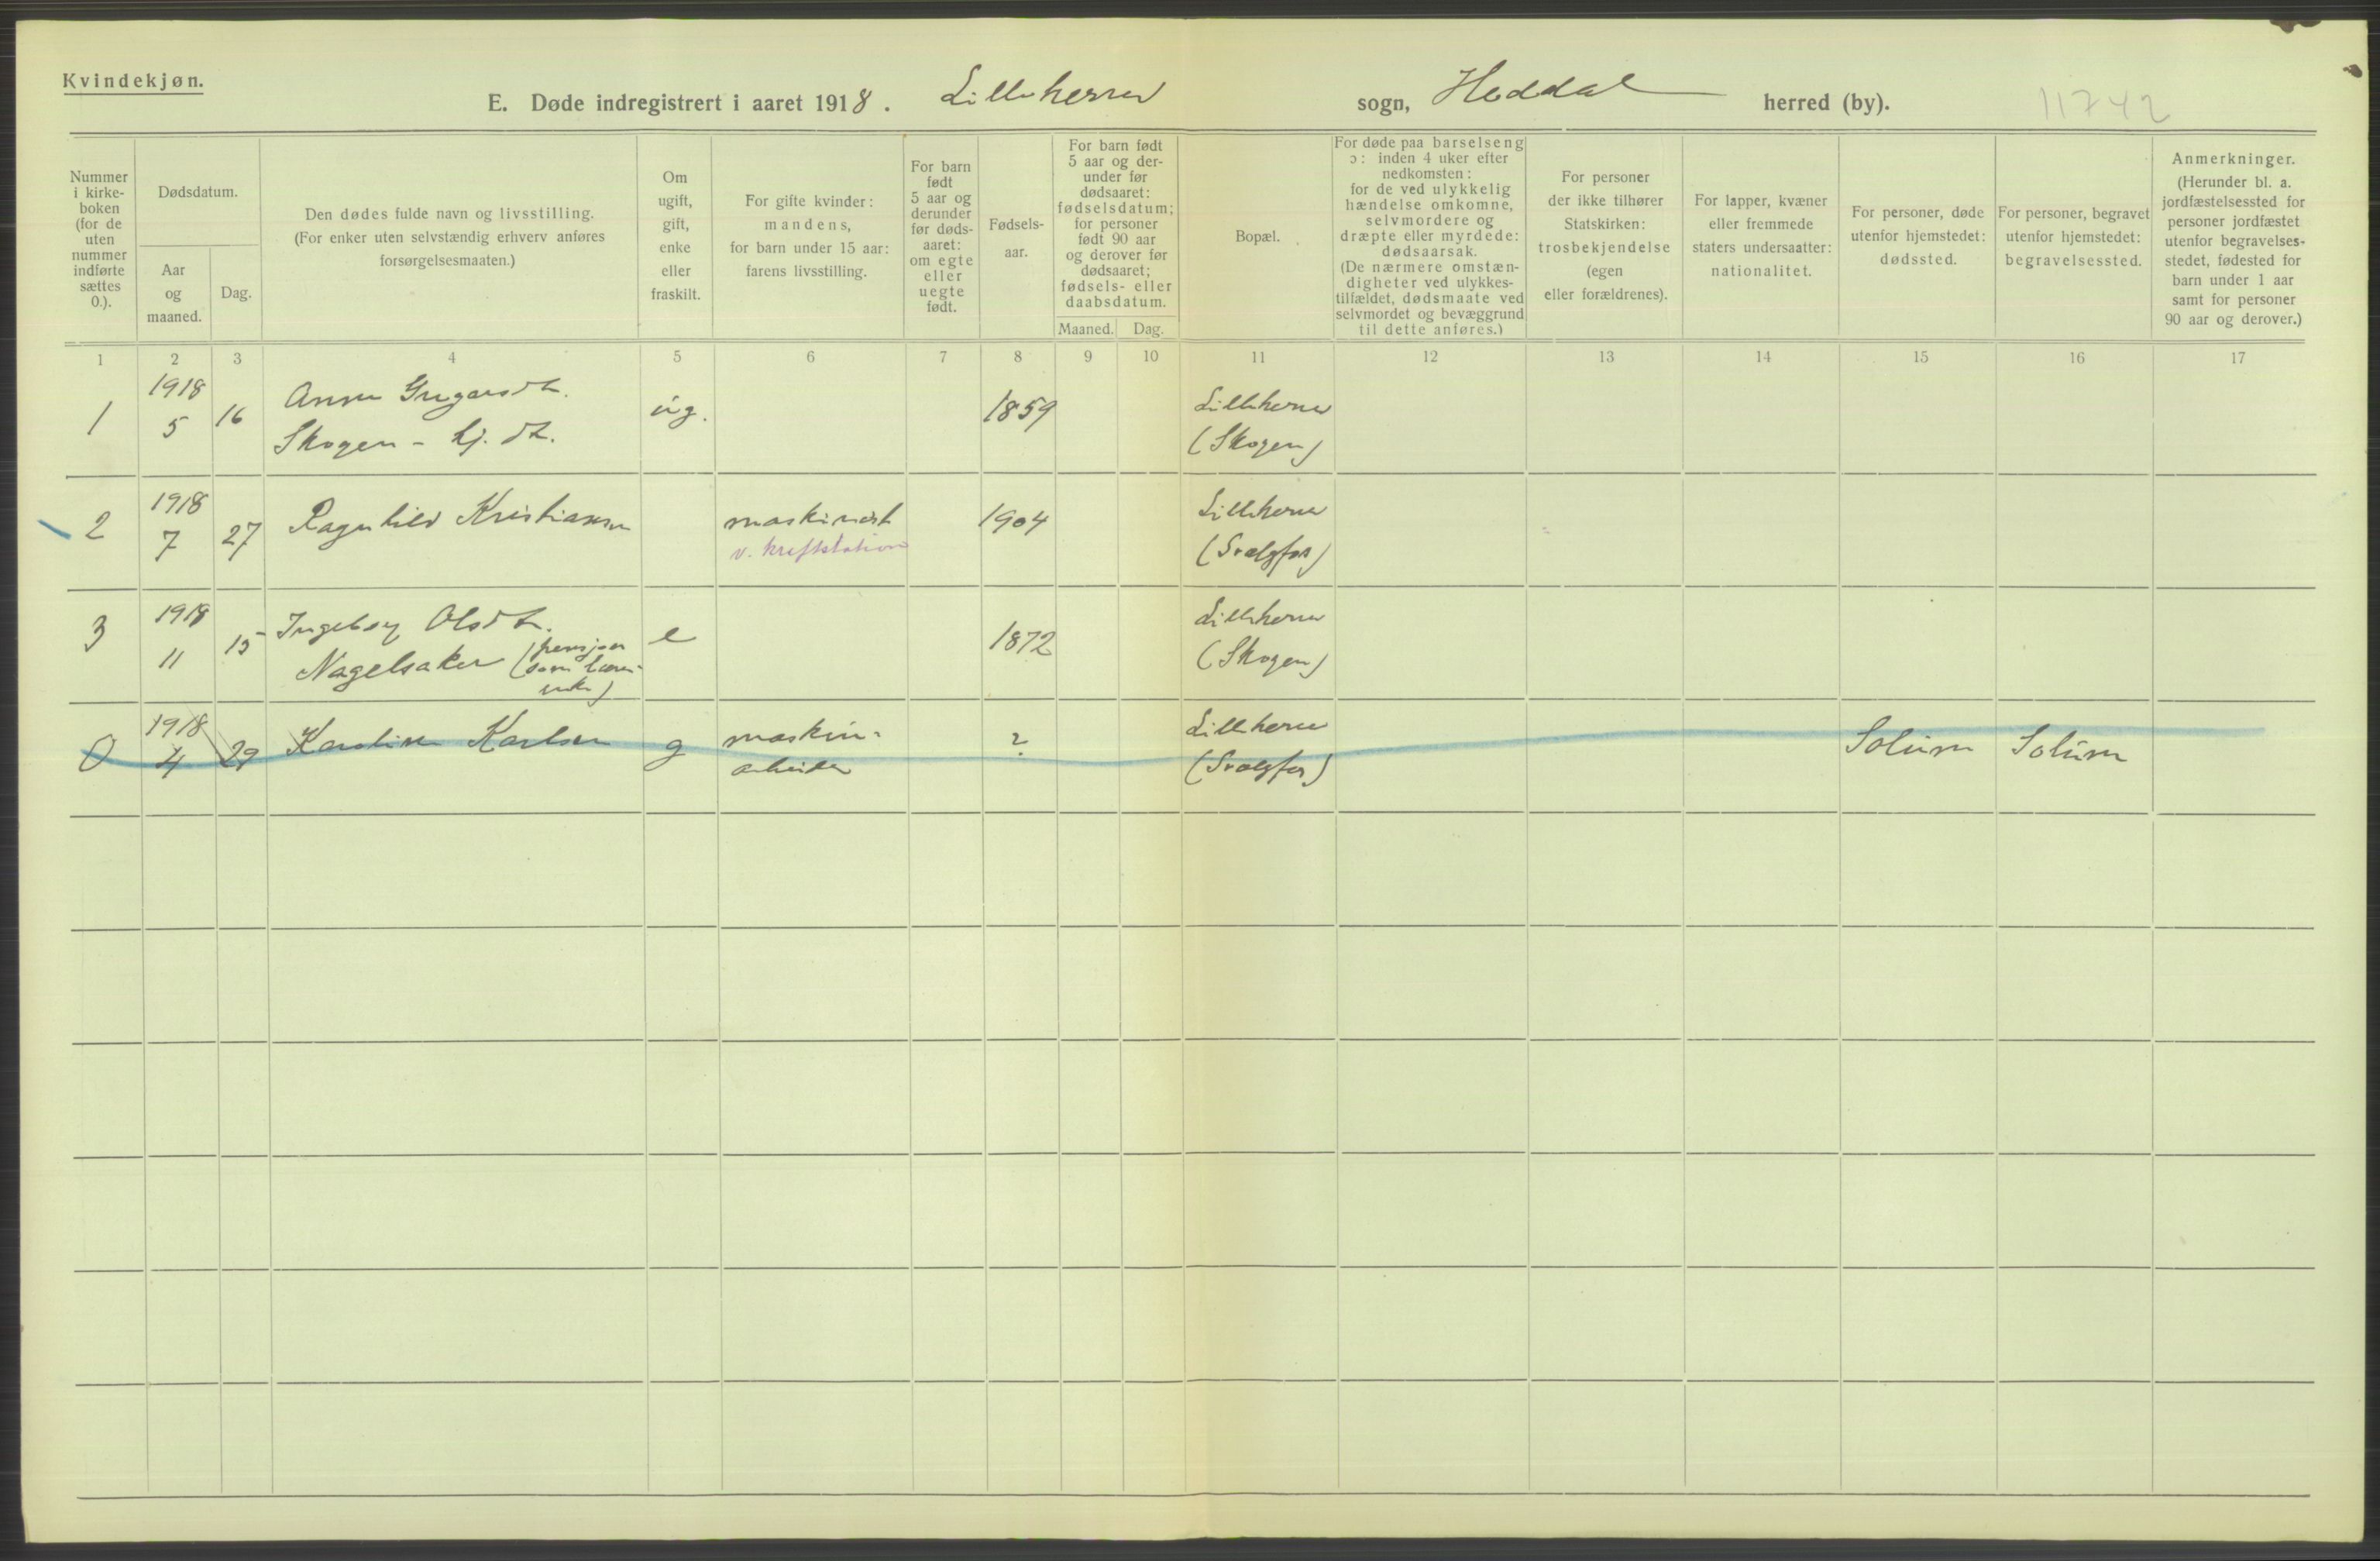 Kvindekjøn.
E. Døde indregistrert i aaret 1918. Lilleherrer sogn, Heddal herred (by). 11742
Nummer
i kirke-
boken
(for de
uten
nummer
indførte
sættes
0.).
Dødsdatum.
Aar
og
maaned.
Dag.
Den dødes fulde navn og livsstilling.
(For enker uten selvstændig erhverv anføres
forsørgelsesmaaten.)
Om
ugift,
gift,
enke
eller
fraskilt.
For gifte kvinder:
mandens,
for barn under 15 aar:
farens livsstilling.
For barn
født
5 aar og
derunder
før døds-
aaret:
om egte
eller
uegte
født.
Fødsels-
aar.
For barn født
5 aar og der-
under før
dødsaaret:
fødselsdatum;
for personer
født 90 aar
og derover før
dødsaaret;
fødsels- eller
daabsdatum.
Maaned. Dag.
Bopæl.
For døde paa barselseng
ɔ: inden 4 uker efter
nedkomsten:
for de ved ulykkelig
hændelse omkomne,
selvmordere og
dræpte eller myrdede:
dødsaarsak.
(De nærmere omstæn-
digheter ved ulykkes-
tilfældet, dødsmaate ved
selvmordet og bevæggrund
til dette anføres.)
For personer
der ikke tilhører
Statskirken:
trosbekjendelse
(egen
eller forældrenes).
For lapper, kvæner
eller fremmede
staters undersaatter:
nationalitet.
For personer, døde
utenfor hjemstedet:
dødssted.
For personer, begravet
utenfor hjemstedet:
begravelsessted.
Anmerkninger.
(Herunder bl. a.
jordfæstelsessted for
personer jordfæstet
utenfor begravelses-
stedet, fødested for
barn under 1 aar
samt for personer
90 aar og derover.)
1 2 3 4 5 6 7 8 9 10 11 12 13 14 15 16 17
1 1918 5 16 Anne Gregarsdt. ug. 1859 Lilleherrer
Skogen - tj. dt. (Skogen)
2 1918 7 27 Ragnhild Kristiansen maskinist 1904 Lilleherrer
v. kraftstation (Svælgfos)
3 1918 11 15 Ingeborg Olsdt. e 1872 Lilleherrer
Nagelsaker (pensjon (Skogen)
som lærer-
enke)
0 1918 4 29 Karoline Karlsen g maskin- ? Lilleherrer Solum Solum
arbeider (Svælgfos)